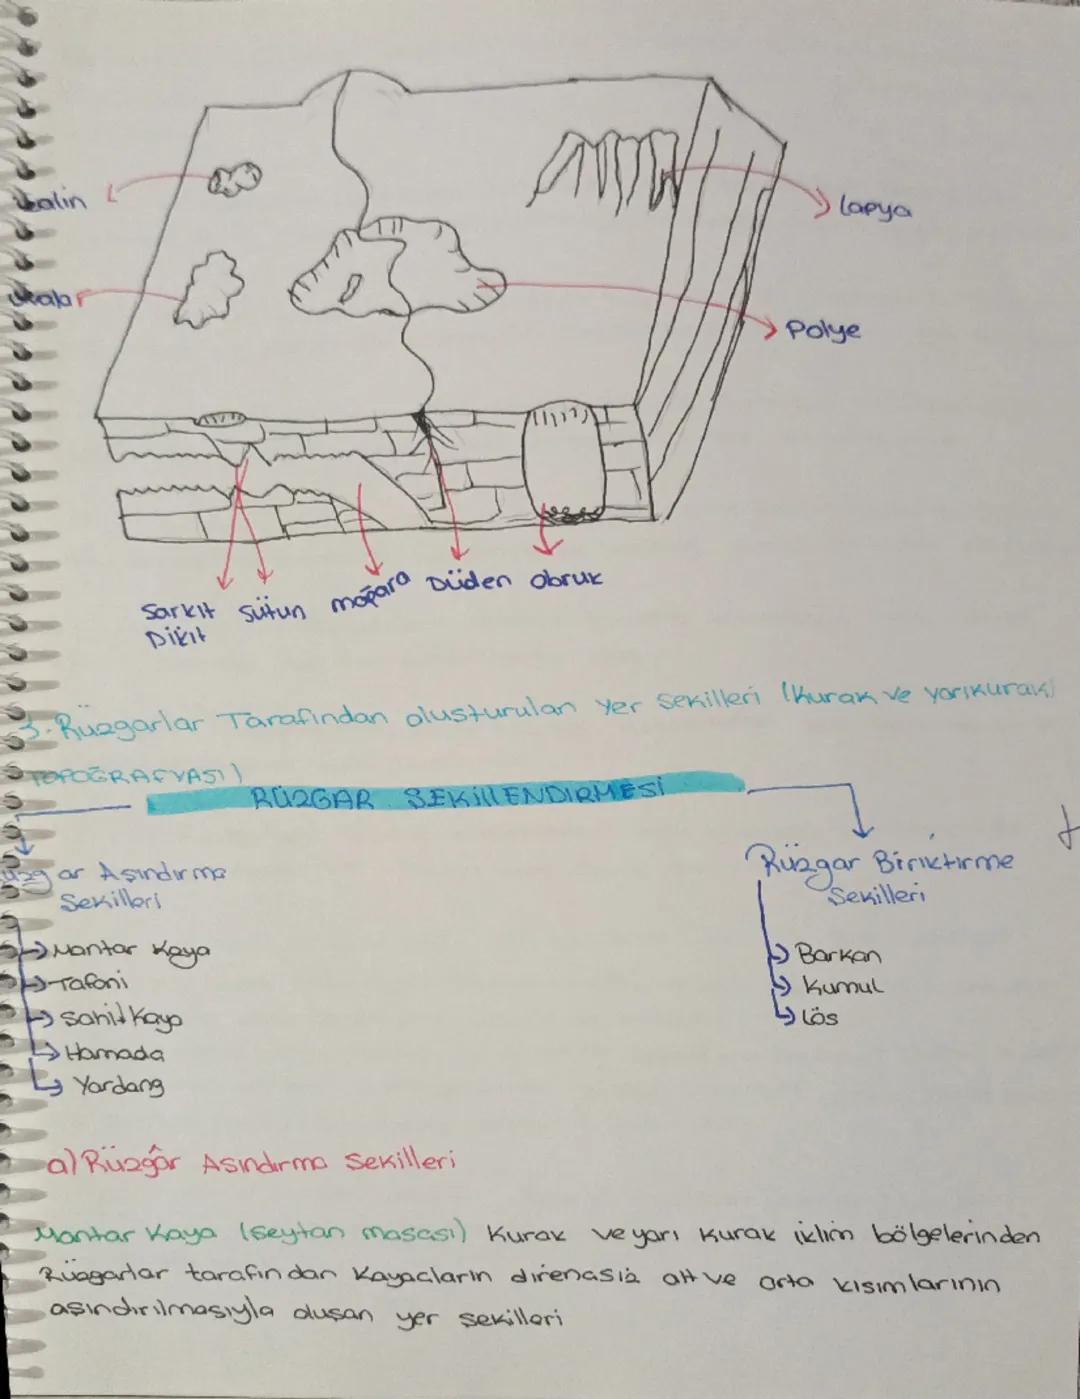 Lapya
Polye
Sarkıt Sütun mağara Düden obruk
Dikit
3. Rüzgarlar Tarafından oluşturulan yer sekilleri (Kurak ve yarıkurak)
TOPOĞRAFYASI)
RÜZGAR SEKİllENDİRMESİ
ar Asındırma
Sekilleri
Rüzgar Biriktirme
Sekilleri
Mantar Kaya
Tafoni
Sahit Kaya
Hamada
Yardang
Barkan
Kumul
Lös
a) Rüzgâr Asındırma Sekilleri
Mantar Kaya (Seytan masası) Kurak ve yarı kurak iklim bölgelerinden
Rüzgarlar tarafından Kayaçların direnasiz alt ve orta kısımlarının
asındırılmasıyla oluşan yer sekilleri